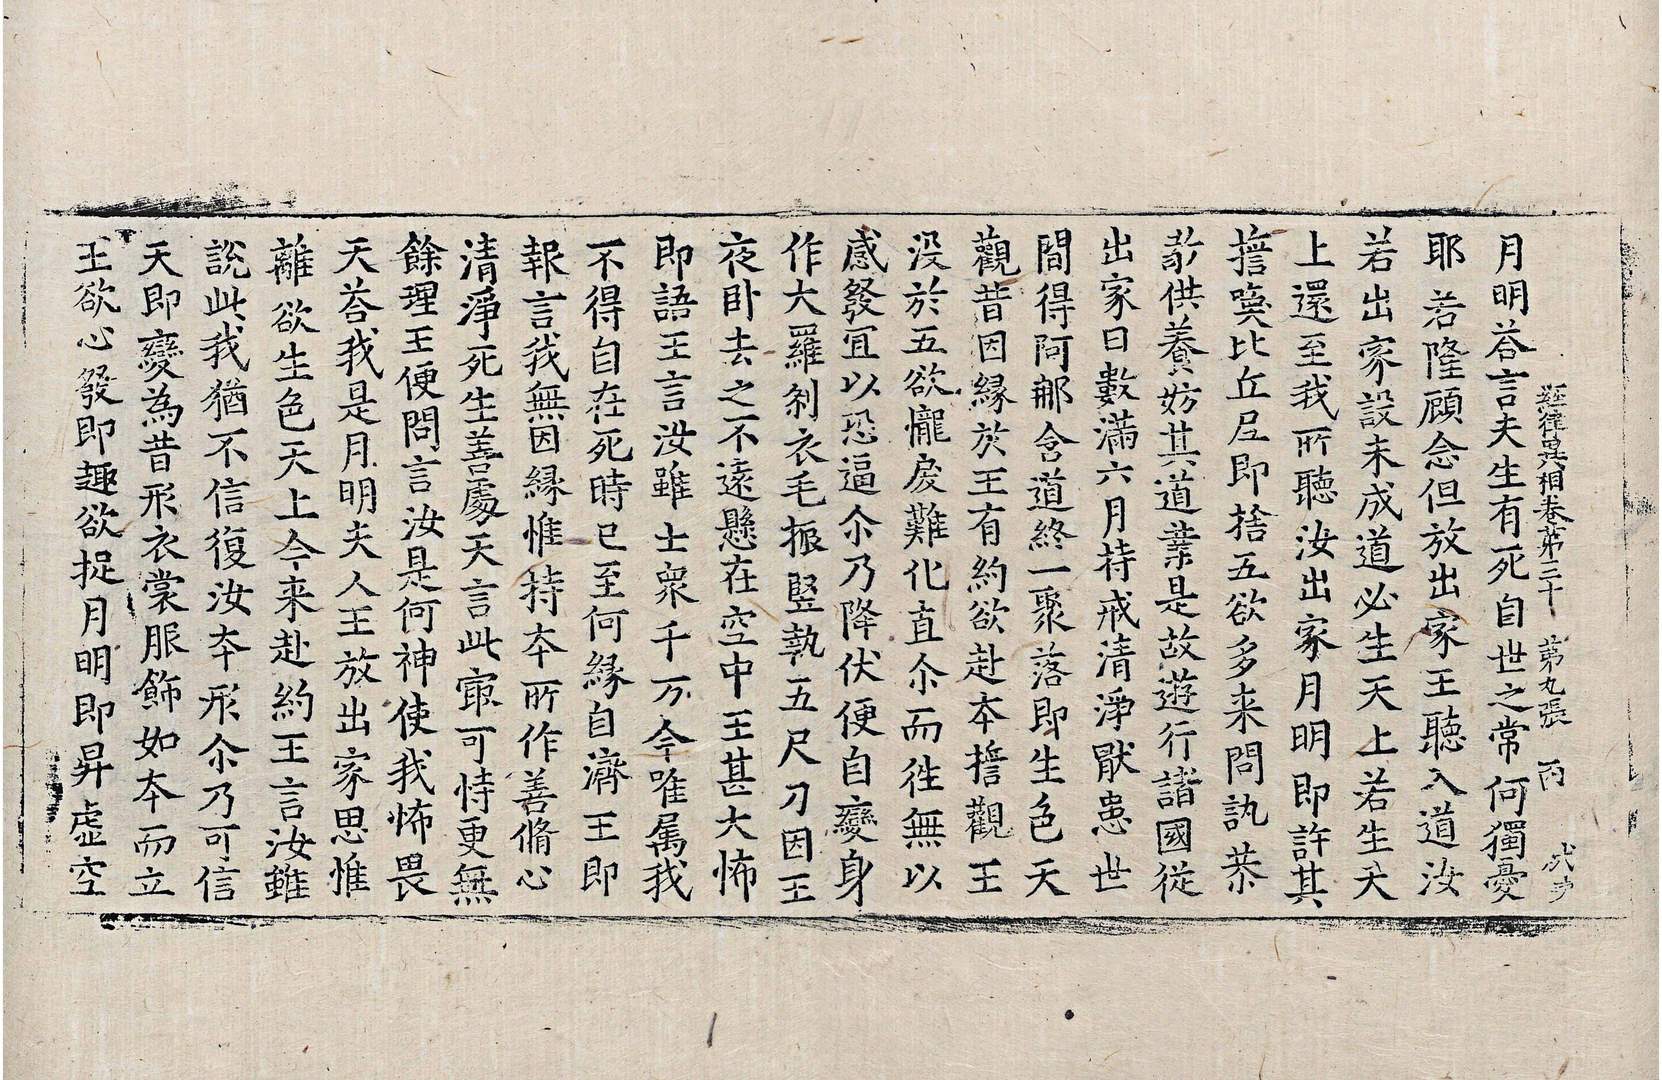 經律異相卷第三十　第九張　丙
月明荅言夫生有死自世之常何獨憂
耶若隆顧念但放出家王聽入道汝
若出家設未成道必生天上若生天
上還至我所聽汝出家月明即許其
擔喚比丘尼即捨五欲多来問訊恭
敬供養妨其道業是故遊行諸國從
出家日數滿六月持戒清淨猒患世
間得阿那含道終一聚落即生色天
觀昔因縁於王有約欲赴本擔觀王
没於五欲儱戾難化直尒而徃無以
感發冝以恐逼尒乃降伏便自變身
作大羅剎衣毛振竪執五尺刀因王
夜卧去之不遠懸在空中王甚大怖
即語王言汝雖士衆千万今唯属我
不得自在死時已至何縁自濟王即
報言我無因縁惟持本所作善脩心
清淨死生善處天言此㝡可恃更無
餘理王便問言汝是何神使我怖畏
天荅我是月明夫人王放出家思惟
離欲生色天上今来赴約王言汝雖
説此我猶不信復汝本形尒乃可信
天即變為昔形衣裳服飾如本而立
王欲心發即趣欲捉月明即昇虛空